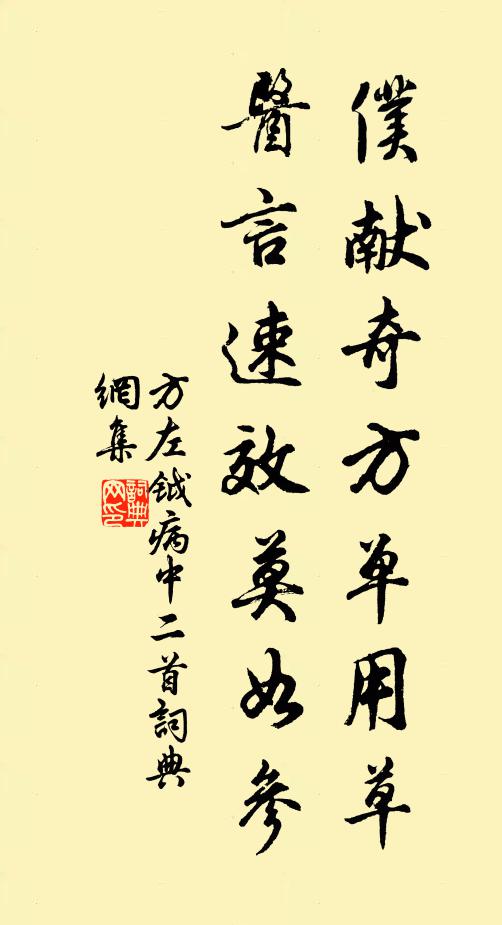 僕献奇方单用草
醫言速效莫如參
方左鉞病中二首詞典
網集
詞典網印